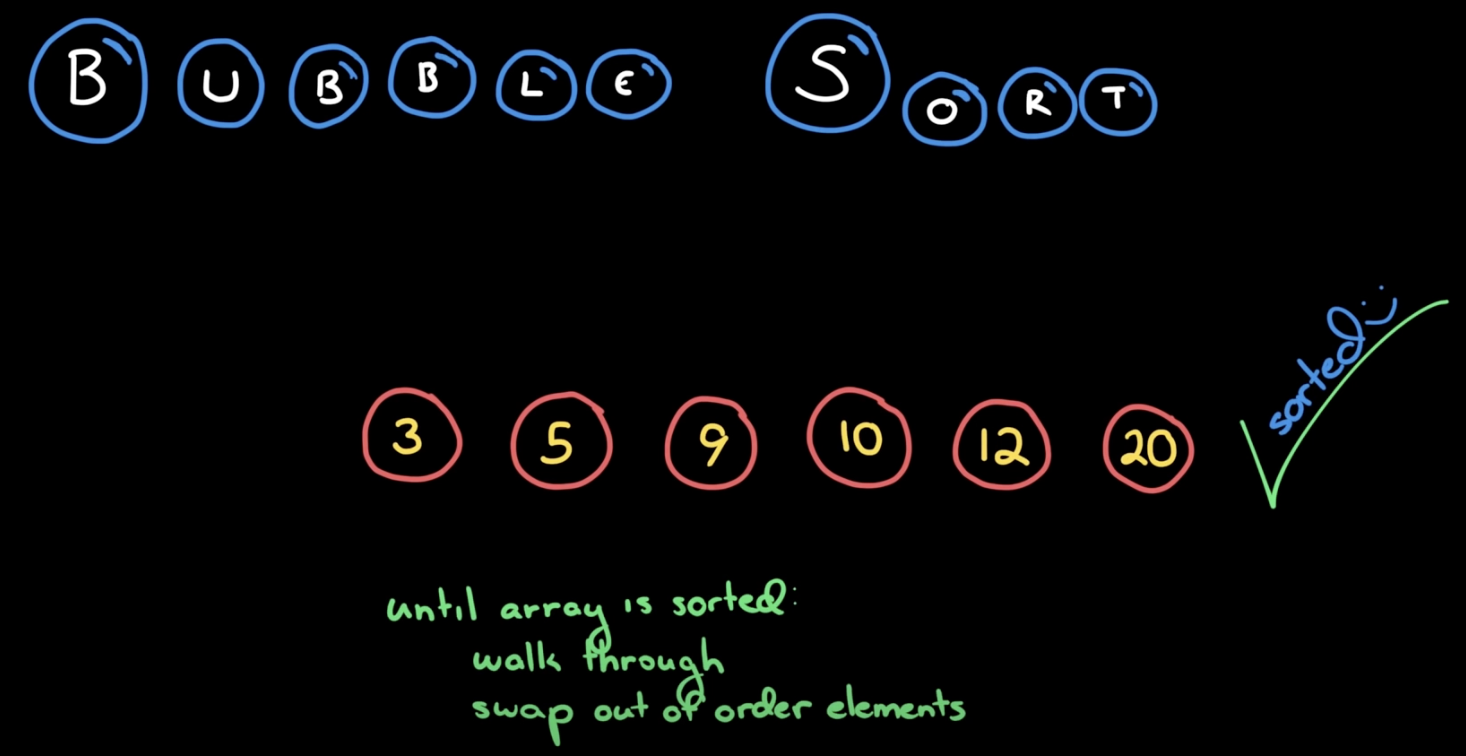 BUBBLE SORT
sorted :)
3 5 9 10 12 20
until array is sorted:
walk through
swap out of order elements